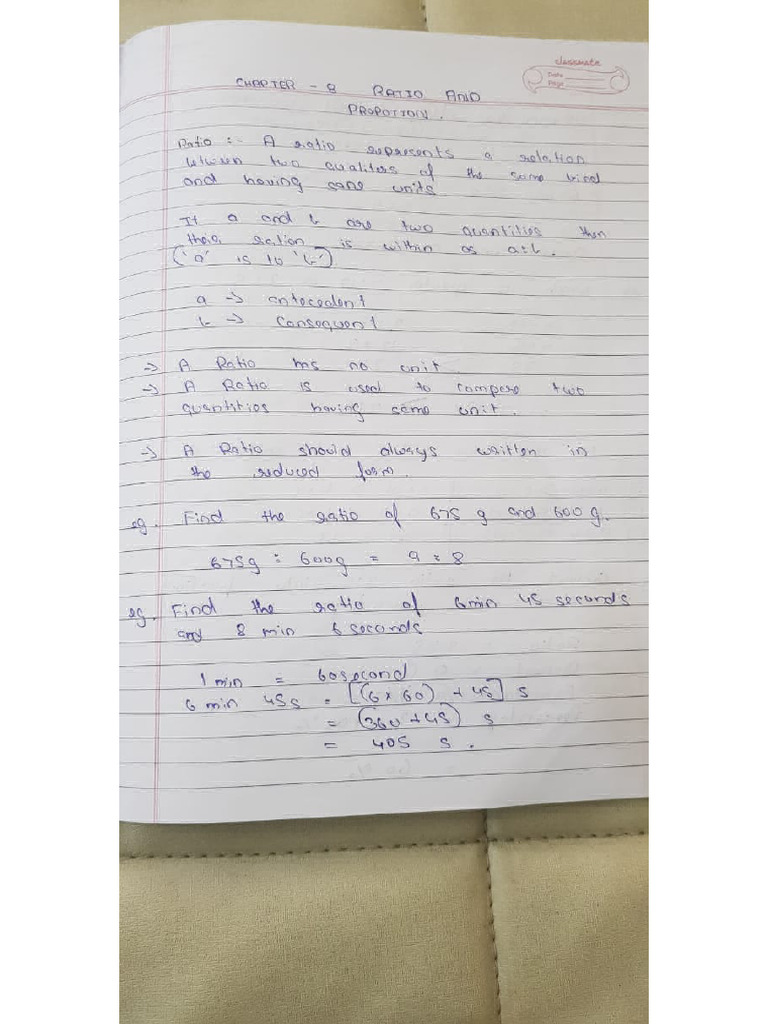 classmate
Date
Page
CHAPTER - 8 RATIO AND
PROPOTION.
Ratio :- A ratio represents a relation
between two qualities of the same kind
and having same units
If a and b are two quantities then
their ration is written as a:b.
('a' is to 'b')
a -> antecedent
b -> Consequent
-> A Ratio has no unit.
-> A Ratio is used to compare two
quantities having same unit.
-> A Ratio should always written in
the reduced form.
eg. Find the ratio of 675 g and 600 g.
675g : 600g = 9 : 8
eg. Find the ratio of 6min 45 seconds
and 8 min 6 seconds
1 min = 60 second
6 min 45s = [(6 × 60) + 45] s
= (360 + 45) s
= 405 s.